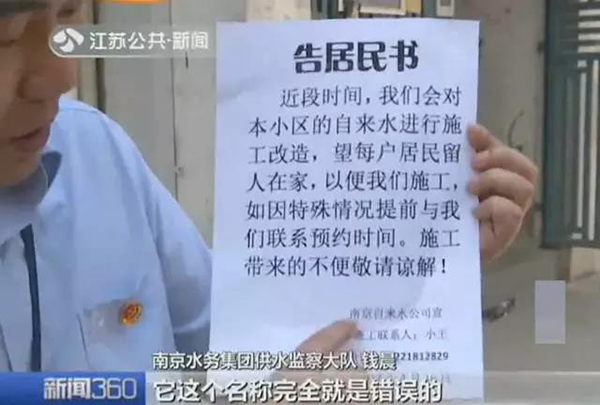 江苏公共·新闻
告居民书
近段时间，我们会对
本小区的自来水进行施
工改造，望每户居民留
人在家，以便我们施工，
如因特殊情况提前与我
们联系预约时间。施工
带来的不便敬请谅解！
南京自来水公司宣
施工联系人：小王
21812829
南京水务集团供水监察大队 钱晨
新闻360
它这个名称完全就是错误的